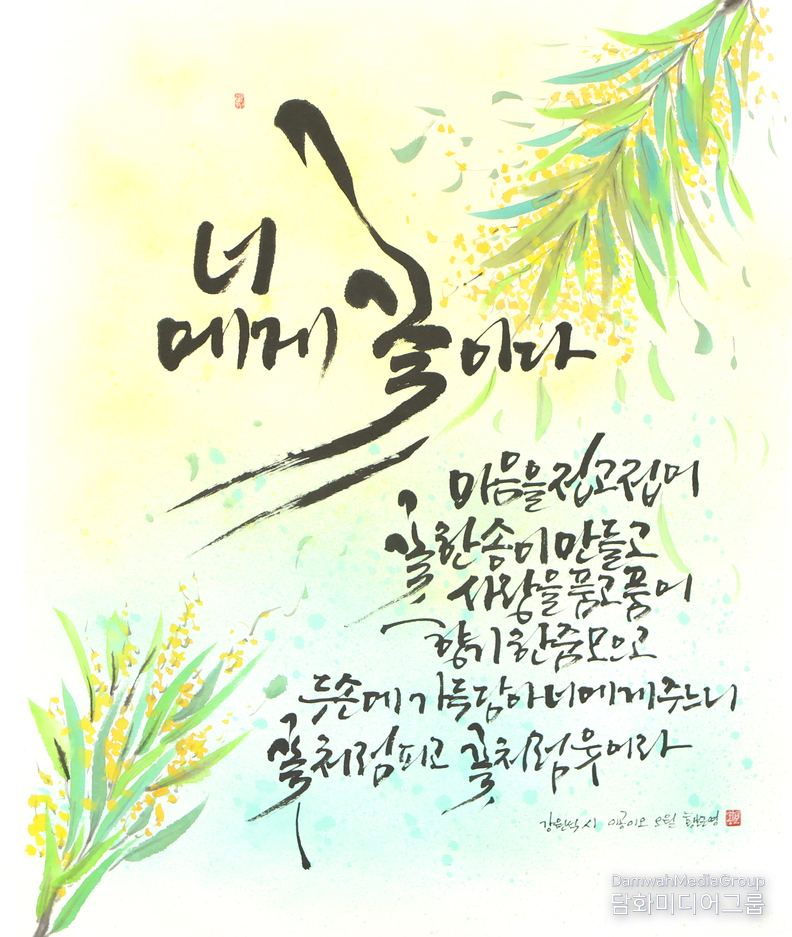 너
에게 꽃이다
마음을 접고 접어
꽃 한 송이 만들고
사랑을 품고 품어
향기 한 줌 모으고
두 손에 가득 담아 너에게 주느니
꽃처럼 피고 꽃처럼 웃어라
강원석 시 이공이오 오월
DamwahMediaGroup
담화미디어그룹